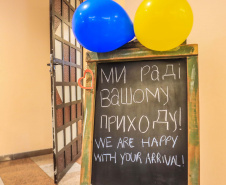 МИ РАДІ
ВАШОМУ
ПРИХОДУ!
WE ARE HAPPY
WITH YOUR ARRIVAL!